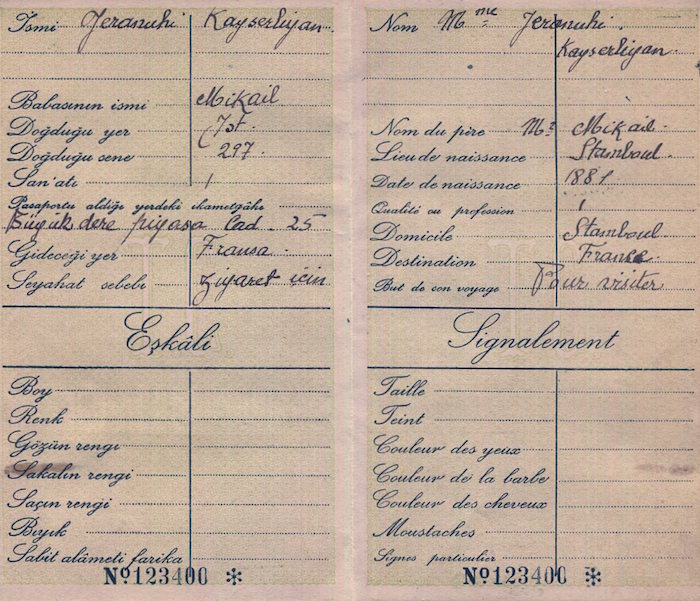 İsmi Jeranuhi Kayserliyan.
Babasının ismi Mikail
Doğduğu yer İst.
Doğduğu sene 297.
San'atı /
Pasaportu aldığı yerdeki ikametgâhı
Büyük dere piyasa Cad. 25
Gideceği yer Fransa.
Seyahat sebebi Ziyaret için
Eşkâli
Boy
Renk
Gözün rengi
Sakalın rengi
Saçın rengi
Bıyık
Sabit alâmeti farika
No 123400 *
Nom Mme Jeranuhi
Kayserliyan.
Nom du père Mr Mikail.
Lieu de naissance Stamboul.
Date de naissance 1881
Qualité ou profession /
Domicile Stamboul
Destination France
But de son voyage Pour visiter
Signalement
Taille
Teint
Couleur des yeux
Couleur de la barbe
Couleur des cheveux
Moustaches
Signes particulier
No 123400 *